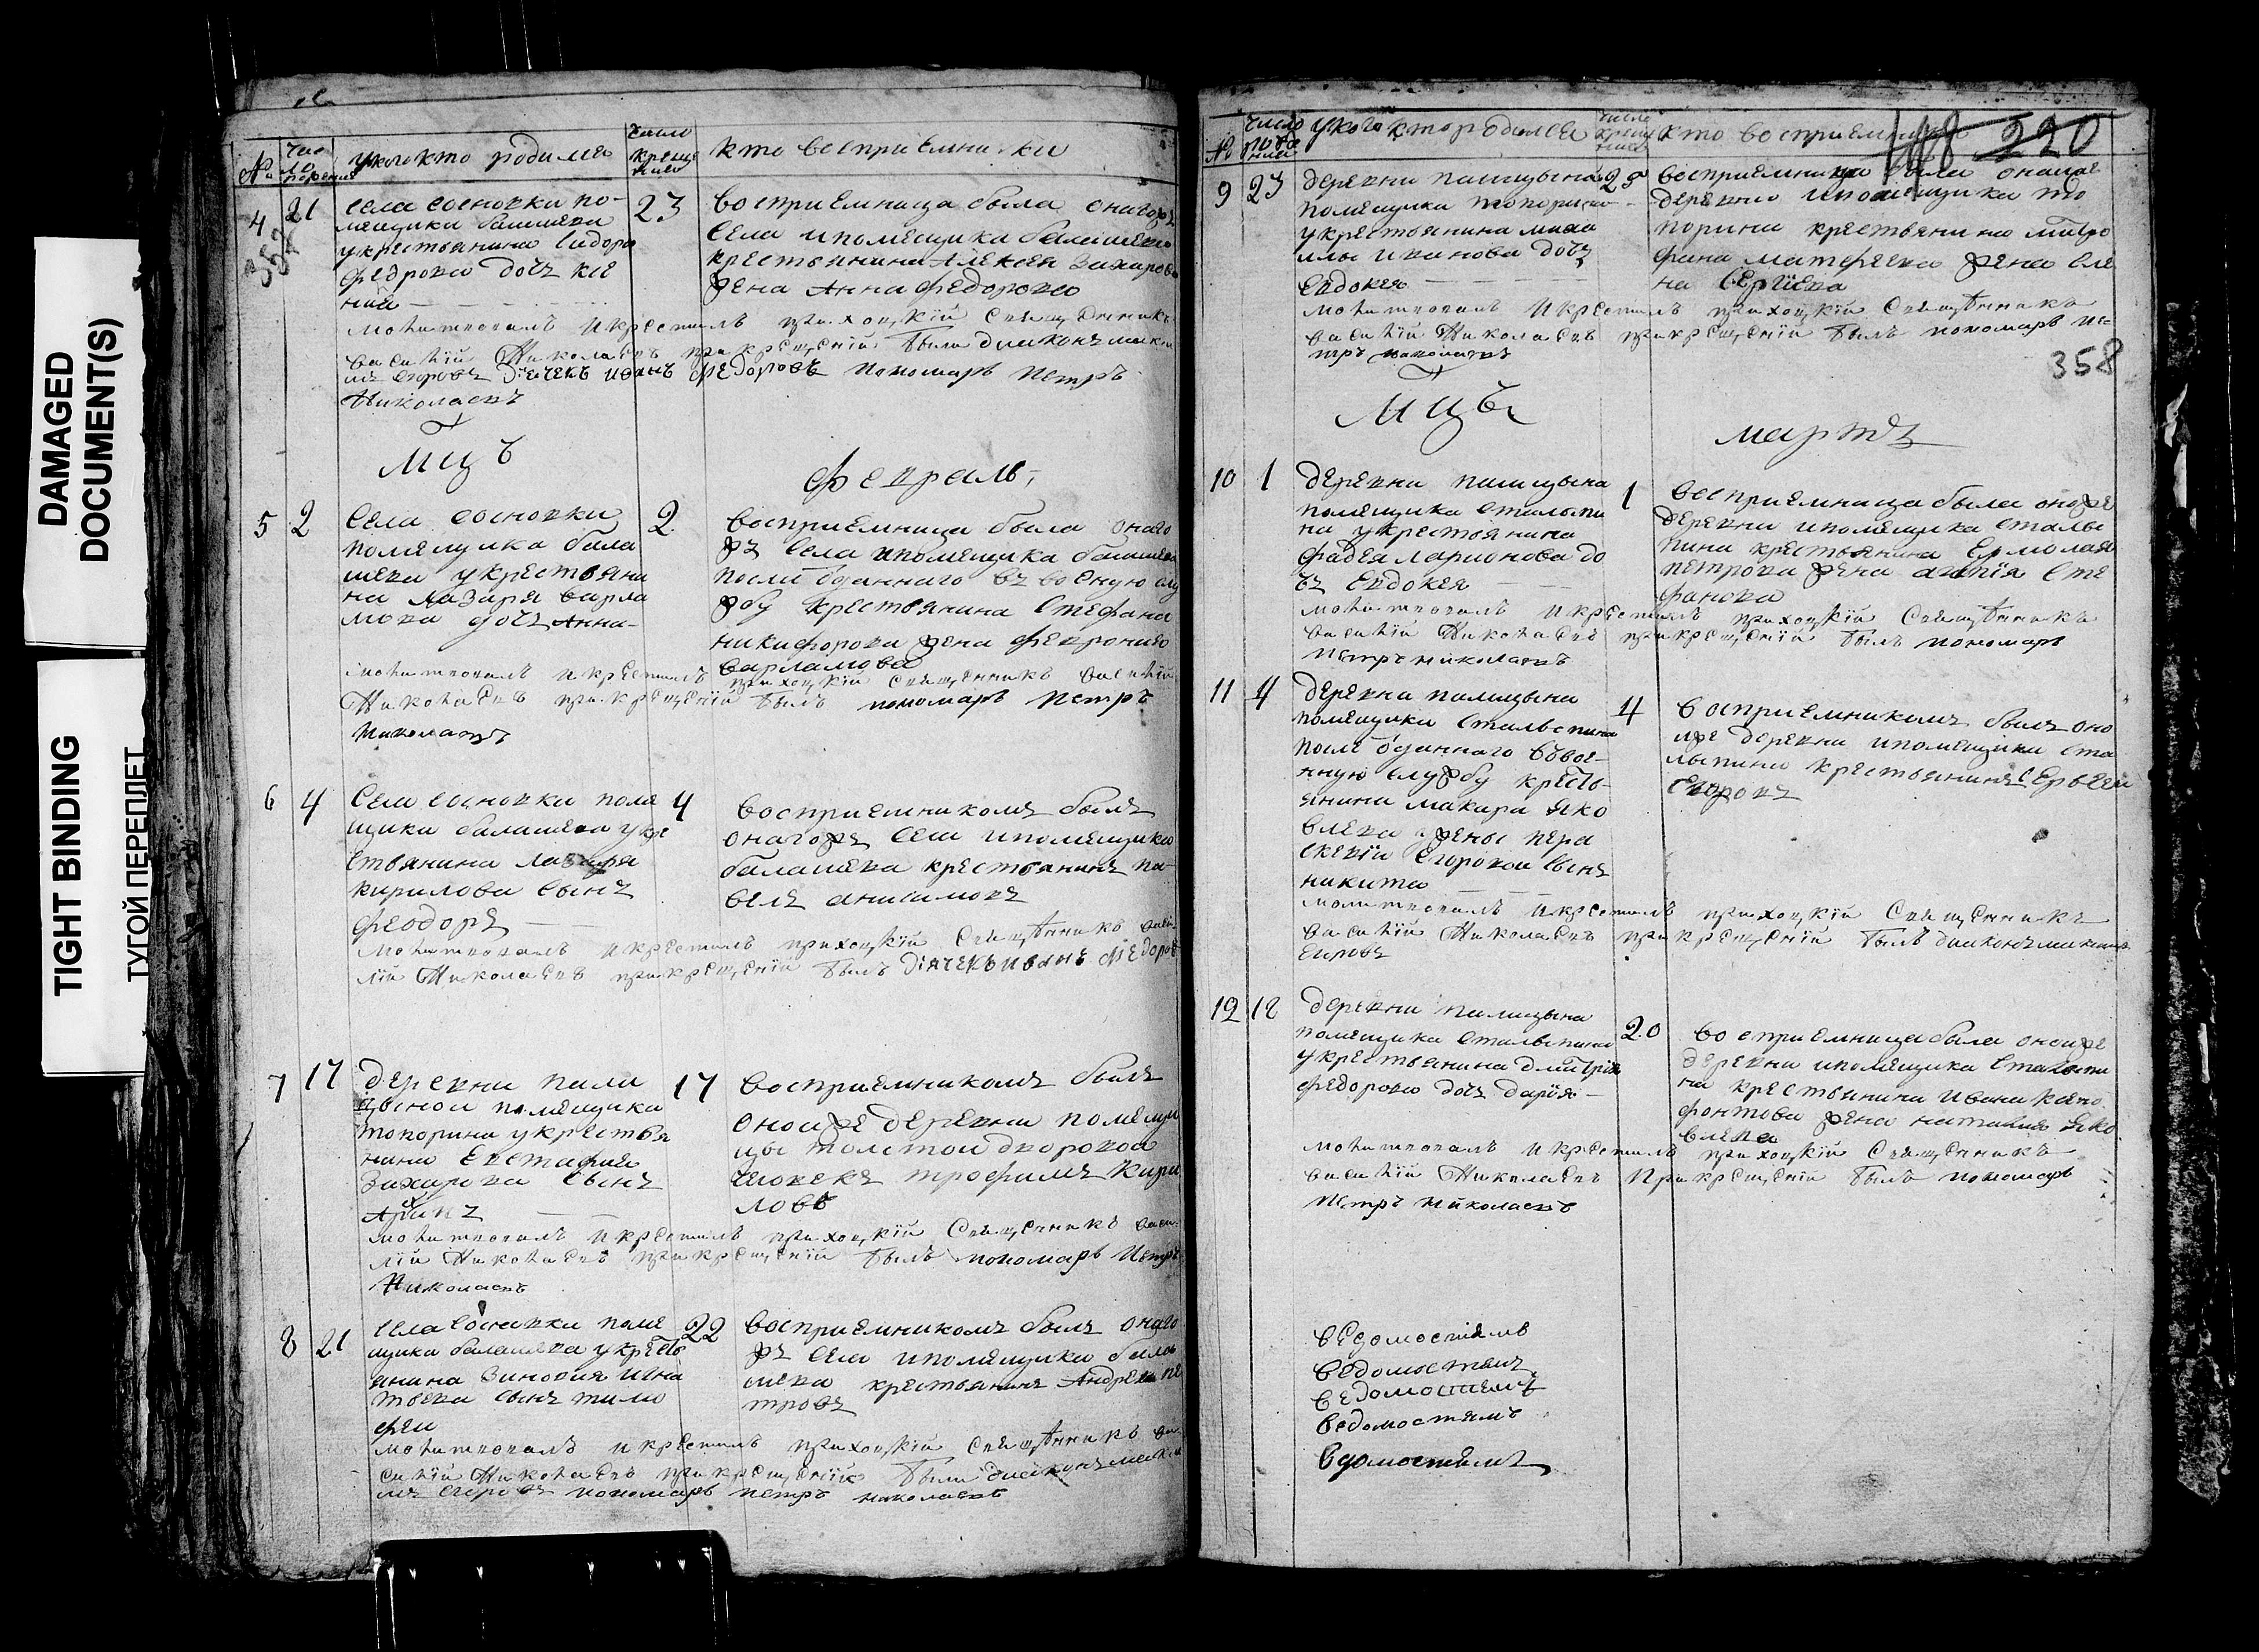 DAMAGED
DOCUMENT(S)
TIGHT BINDING
ТУГОЙ ПЕРЕПЛЕТ
№
число рождения
у кого кто родился
число крещения
кто восприемники
4
21
села сосновки по-
мещика балашева
у крестьянина Сидора
федорова дочь ксе
ния
23
восприемница была онагожъ
села и помещика балашева
крестьянина Алексея Захарова
жена Анна федорова
молитвовалъ и крестилъ приходскій Священникъ
василій Николаевъ при крещеніи были диаконъ макси
мъ егоровъ Дьячекъ иванъ Федоровъ пономарь петръ
Николаевъ
Мцъ
февраль
5
2
села сосновки
помещика бала
шева у крестьяни
на лазаря варла
мова дочь Анна
2
восприемница была онаго
жъ села и помещика балашева
после отданнаго въ военную слу
жбу крестьянина Стефана
никифорова жена феврония
варламова
молитвовалъ и крестилъ приходскій священникъ василій
Николаевъ при крещеніи былъ пономарь петръ
николаевъ
6
4
села сосновки поме
щика балашева у кре
стьянина лазаря
кирилова сынъ
феодоръ
4
восприемникомъ былъ
онагожъ села и помещика
балашева крестьянинъ па-
велъ анисимовъ
молитвовалъ и крестилъ приходскій Священникъ васи
лій Николаевъ при крещеніи былъ Дьячекъ иванъ Федоров
7
17
деревни пали
цыной помещика
топорина у крестья
нина Евстафия
Захарова сынъ
17
восприемникомъ былъ
оной же деревни помещи
цы толстой дворовой
человекъ трофимъ Кири
ловъ
молитвовалъ и крестилъ приходскій Священникъ васи
лій Николаевъ при крещеніи былъ пономарь Петръ
Николаевъ
8
21
села сосновки поме
щика балашева у кресть
янина Зиновия игна
тьева сынъ тимо
фей
22
восприемникомъ былъ онаго
жъ села и помещика бала
шева крестьянинъ Андрей пе
тровъ
молитвовалъ и крестилъ приходскій Священникъ ва
силій Николаевъ при крещеніи были диаконъ макси
мъ егоровъ пономарь петръ николаевъ
№
число рождения
у кого кто родился
число крещения
кто восприемники
220
9
23
деревни палицына
помещика топорина
у крестьянина миха
илы иванова дочь
Евдокея
25
восприемница была оной же
деревни и помещика то
порина крестьянина митро
фана матфеева жена еле
на Сергеева
молитвовалъ и крестилъ приходскій Священникъ
василій Николаевъ при крещеніи былъ пономарь пе-
тръ николаевъ
358
Мцъ
мартъ
10
1
деревни палицына
помещика столыпи
на у крестьянина
фадея ларионова до
чь Евдокея
1
восприемница была оной же
деревни и помещика столы
пина крестьянина Ермолая
петрова жена агапия сте
фанова
молитвовалъ и крестилъ приходскій Священникъ
василій Николаевъ при крещеніи былъ пономарь
петръ николаевъ
11
4
деревни палицына
помещика столыпина
после отданнаго въ вое-
нную службу кресть-
янина макара яко
влева жены пара
скевіи Егоровой сынъ
никита
4
восприемникомъ былъ оно
й же деревни и помещика сто
лыпина крестьянинъ
Егоровъ
молитвовалъ и крестилъ приходскій Священникъ
василій Николаевъ при крещеніи былъ диаконъ максимъ
Егоровъ
12
18
деревни палицына
помещика столыпина
у крестьянина Дмитрія
федорова дочь дарія
20
восприемница была оной же
деревни и помещика столыпи
на крестьянина ивана ксено
фонтова жена наталия яко
влева
молитвовалъ и крестилъ приходскій Священникъ
василій Николаевъ При крещеніи былъ пономарь
петръ николаевъ
ведомостямъ
ведомостямъ
ведомостямъ
ведомостямъ
вдомостямъ